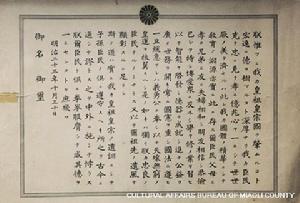 朕惟フニ我カ皇祖皇宗國ヲ肇ムルコト
宏遠ニ德ヲ樹ツルコト深厚ナリ我カ臣民
克ク忠ニ克ク孝ニ億兆心ヲ一ニシテ世世
厥ノ美ヲ濟セルハ此レ我カ國體ノ精華ニシテ
教育ノ淵源亦實ニ此ニ存ス爾臣民父母ニ
孝ニ兄弟ニ友ニ夫婦相和シ朋友相信シ恭儉
己レヲ持シ博愛衆ニ及ホシ學ヲ修メ業ヲ習ヒ
以テ智能ヲ啓發シ德器ヲ成就シ進テ公益ヲ
廣メ世務ヲ開キ常ニ國憲ヲ重シ國法ニ遵ヒ
一旦緩急アレハ義勇公ニ奉シ以テ天壤無窮ノ
皇運ヲ扶翼スヘシ是ノ如キハ獨リ朕カ忠良ノ
臣民タルノミナラス又以テ爾祖先ノ遺風ヲ
顯彰スルニ足ラン
斯ノ道ハ實ニ我カ皇祖皇宗ノ遺訓ニシテ
子孫臣民ノ俱ニ遵守スヘキ所之ヲ古今ニ
通シテ謬ラス之ヲ中外ニ施シテ悖ラス
朕爾臣民ト俱ニ拳々服膺シテ咸其德ヲ
一ニセンコトヲ庶幾フ
明治二十三年十月三十日
御名御璽
CULTURAL AFFAIRS BUREAU OF MIAOLI COUNTY